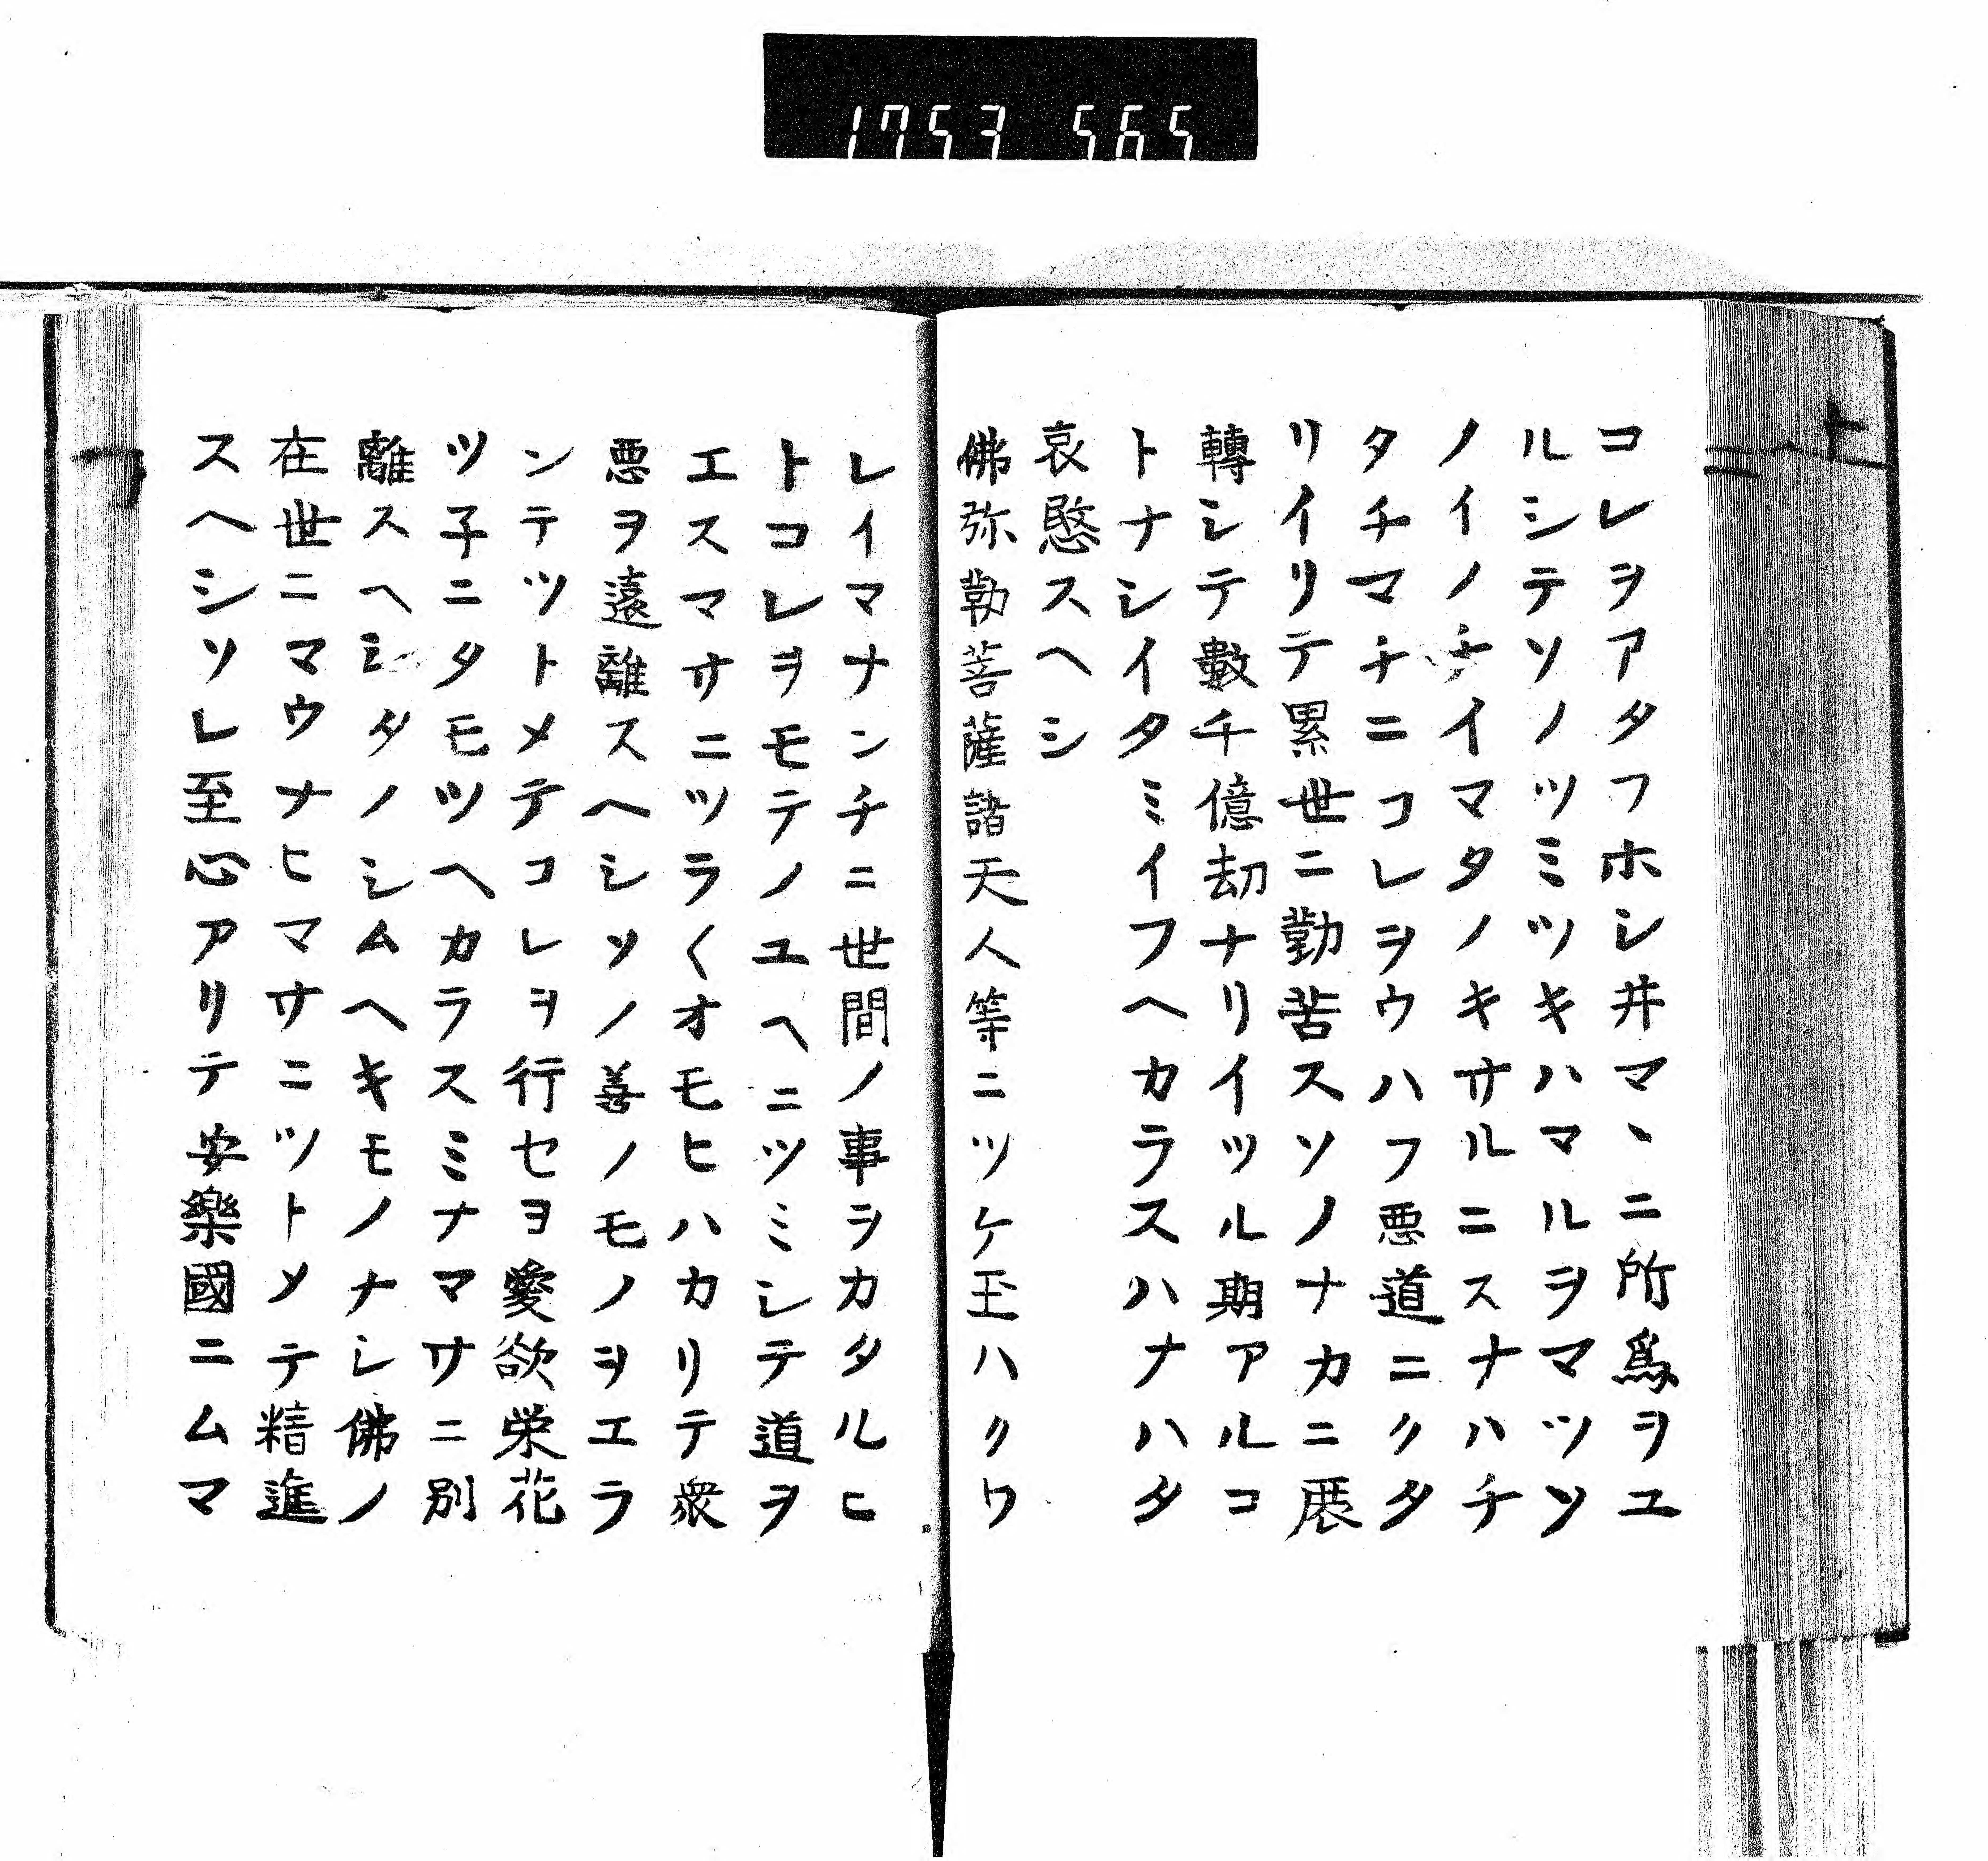 1753 565
コレヲアタフホシ井マヽニ所爲ヲユ
ルシテソノツミツキハマルヲマツソ
ノイノチイマタノキサルニスナハチ
タチマチニコレヲウハフ悪道ニクタ
リイリテ累世ニ勤苦スソノナカニ展
轉シテ數千億劫ナリイツル期アルコ
トナシイタミイフヘカラスハナハタ
哀愍スヘシ
佛弥勒菩薩諸天人等ニツケ玉ハクワ
レイマナンチニ世間ノ事ヲカタルヒ
トコレヲモテノユヘニツミシテ道ヲ
エスマサニツラ〱オモヒハカリテ衆
悪ヲ遠離スヘシソノ善ノモノヲエラ
ンテツトメテコレヲ行セヨ愛欲栄花
ツ子ニタモツヘカラスミナマサニ別
離スヘシタノシムヘキモノナシ佛ノ
在世ニマウナヒマサニツトメテ精進
スヘシソレ至心アリテ安樂國ニムマ